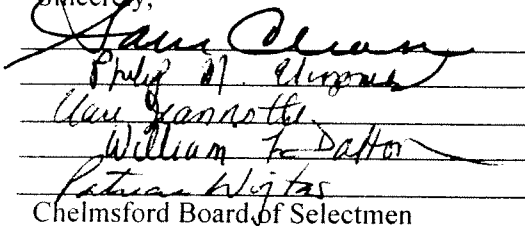 Sincerely,
Philip M.
Jeannotte
William F. Dalton
Patricia Wojtas
Chelmsford Board of Selectmen